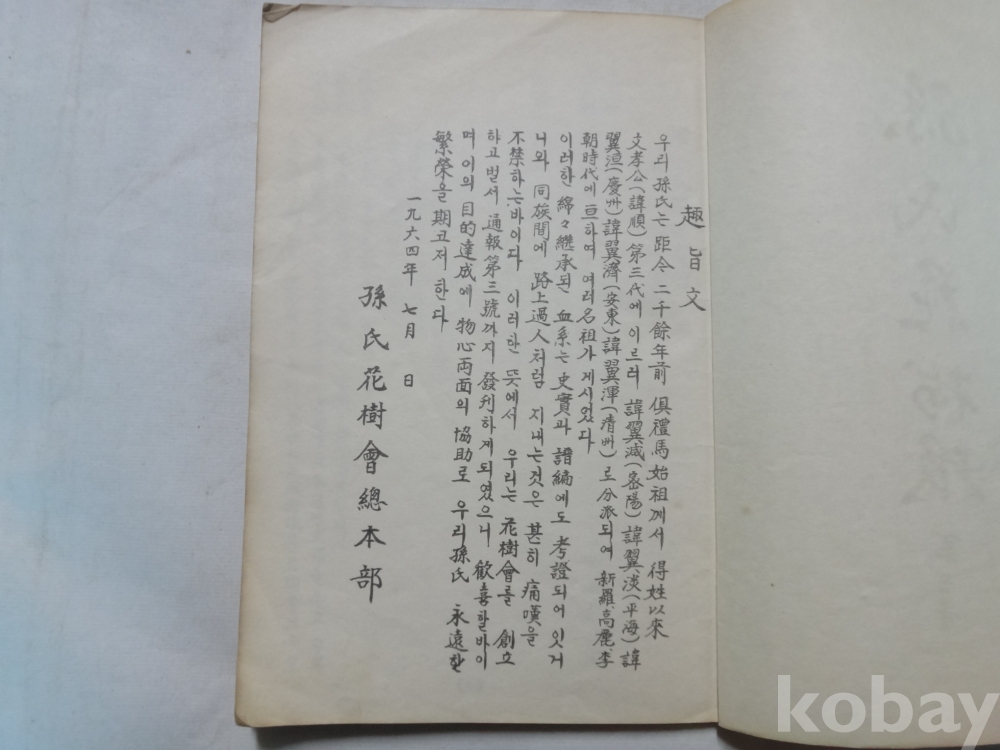 趣旨文
우리 孫氏는 距今 二千餘年前 俱禮馬始祖께서 得姓以來
文孝公(諱順) 第三代에 이르러 諱翼減(密陽) 諱翼淡(平海) 諱
翼洹(慶州) 諱翼濟(安東) 諱翼渾(淸州)로 分派되여 新羅、高麗、李
朝時代에 亘하여 여러 名祖가 게시었다
이러한 綿々 繼承된 血系는 史實과 譜編에도 考證되어 잇거
니와 同族間에 路上過人처럼 지내는것은 甚히 痛嘆을
不禁하는바이다 이러한 뜻에서 우리는 花樹會를 創立
하고 벌서 通報第三號까지 發刊하게 되였으니 歡喜할바이
며 이의 目的達成에 物心両面의 協助로 우리孫氏 永遠한
繁榮을 期코저 한다
一九六四年 七月 日
孫氏花樹會總本部
kobay